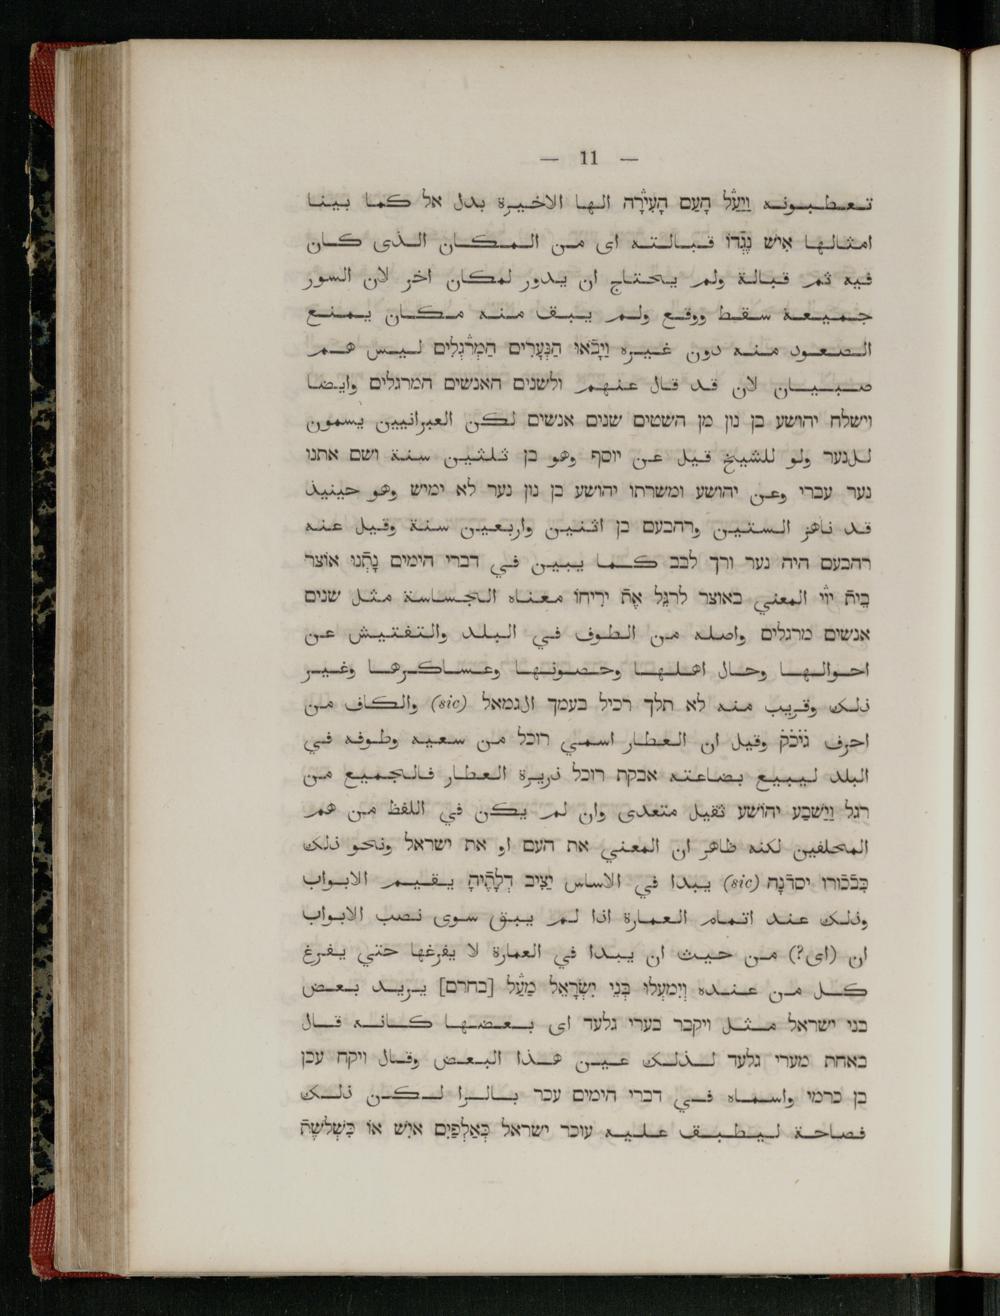 — 11 —
تعطبونه וַיַּעַל הָעָם הָעִירָה الها الاخيرة بدل אל كما بينا
امثالها אִישׁ נֶגְדּוֹ قبالته اى من المكان الذى كان
فيه ثم قبالة ولم يحتاج ان يدور لمكان اخر لان السور
جميعه سقط ووقع ولم يبق منه مكان يمنع
الصعود منه دون غيره וַיָּבֹאוּ הַנְּעָרִים הַמְרַגְלִים ليس هم
صبيان لان قد قال عنهم ולשנים האנשים המרגלים وايضا
וישלח יהושע בן נון מן השטים שנים אנשים لكن العبرانيين يسمون
للנער ولو للشيخ قيل عن יוסף وهو בן ثلثين سنة ושם אתנו
נער עברי وعن יהושע ומשרתו יהושע בן נון נער לא ימיש وهو حينيذ
قد ناهز الستين ורחבעם בן اثنين واربعين سنة وقيل عنه
רחבעם היה נער ורך לבב كما يبين في דברי הימים נָתְנוּ אוֹצַר
בֵּית יְיָ المعني באוצר לרַגֵּל אֶת יְרִיחוֹ معناه الجساسة مثل שנים
אנשים מרגלים واصله من الطوف في البلد والتفتيش عن
احوالها وحال اهلها وحصونها وعساكرها وغير
ذلك وقريب منه לא תלך רכיל בעמך الגמאל (sic) والكاف من
احرف גיכק وقيل ان العطار اسمي רוכל من سعيه وطوفه في
البلد ليبيع بضاعته אבקת רוכל ذريرة العطار فالجميع من
רגל וַיַּשְׁבַּע יהוֹשׁע ثقيل متعدى وان لم يكن في اللفظ من هم
المحلفين لكنه ظاهر ان المعني את העם او את ישראל ونحو ذلك
בִּבְכוֹרוֹ יסדנָה (sic) يبدا في الاساس יַצִּיב דְּלָתֶיהָ يقيم الابواب
وذلك عند اتمام العمارة اذا لم يبق سوى نصب الابواب
ان (اى?) من حيث ان يبدا في العمارة لا يفرغها حتي يفرغ
كل من عنده וַיִּמְעֲלוּ בְּנֵי יִשְׂרָאֵל מַעַל [בחרם] يريد بعض
בני ישראל مثل ויקבר בערי גלעד اى بعضها كانه قال
באחת מערי גלעד لذلك عين هذا البعض وقال ויקח עכן
בן כרמי واسماه في דברי הימים עכר بالرا لكن ذلك
فصاحة ليطبق عليه עוכר ישראל כְּאַלְפַּיִם אִישׁ אוֹ כִּשְׁלֹשֶׁת